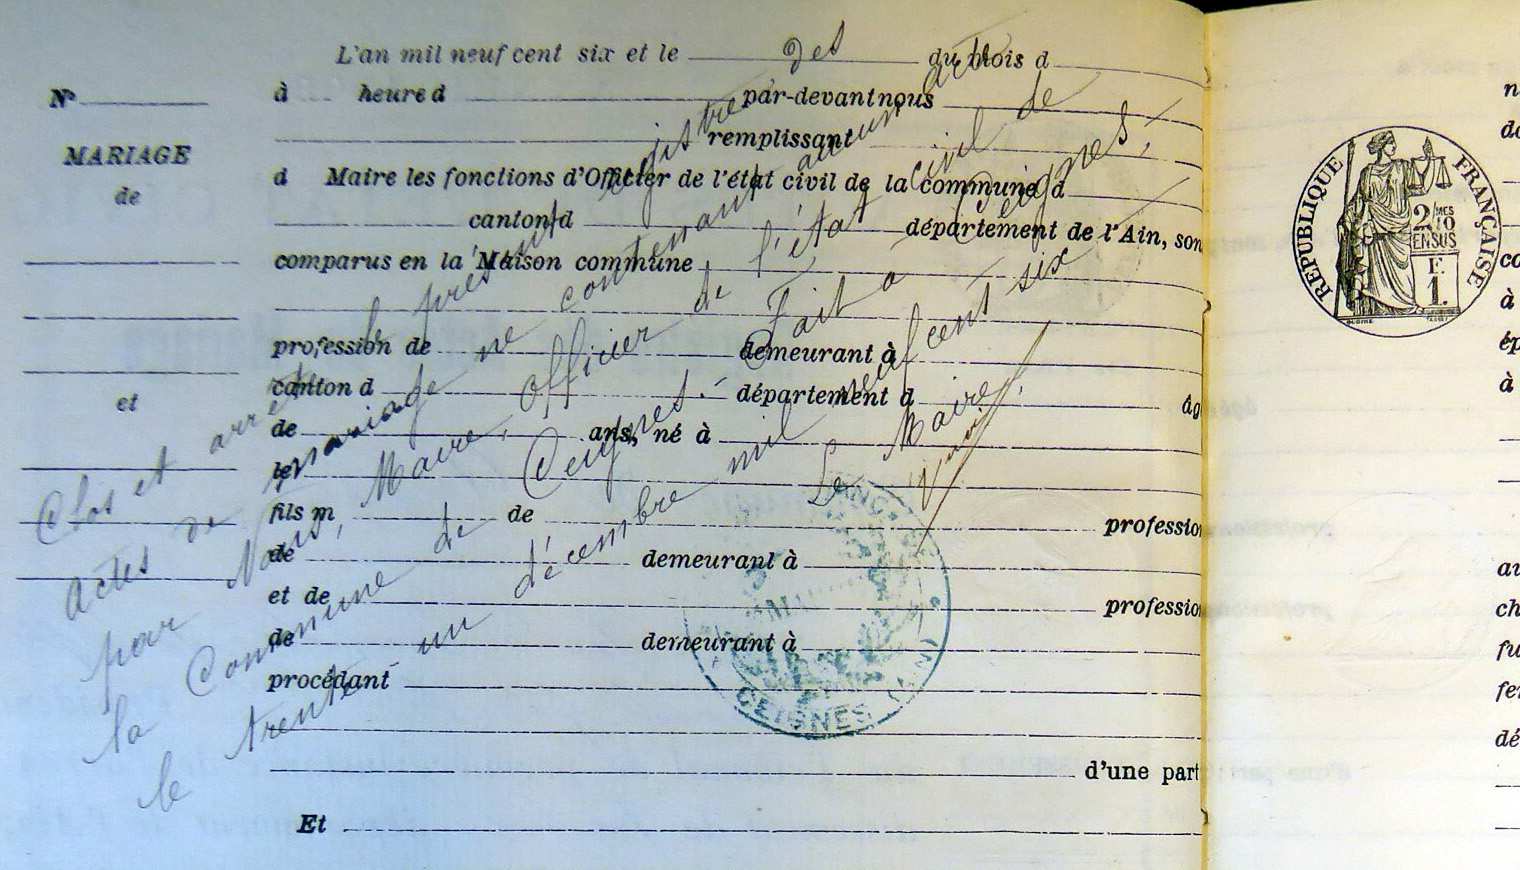 L'an mil neuf cent six et le du mois d
N°
à heure d par-devant nous
remplissant
MARIAGE
de
d Maire les fonctions d'Officier de l'état civil de la commune d
canton d département de l'Ain, son
comparus en la Maison commune
profession de demeurant à
canton d département d âg
et
de ans, né à
le
fils m de profession
de demeurant à
et de profession
de demeurant à
procédant
d'une part
Et
Clos et arrêté le présent registre des
actes de mariage ne contenant aucun acte
par Nous, Maire, officier de l'état civil de
la Commune de Ceignes. - Fait à Ceignes,
le trente-un décembre mil neuf cent six
Le Maire,
CEIGNES (AIN)
RÉPUBLIQUE FRANÇAISE
2/10
MES
EN SUS
F.
1.
n
do
co
à
ép
à
au
ch
fu
fer
dé